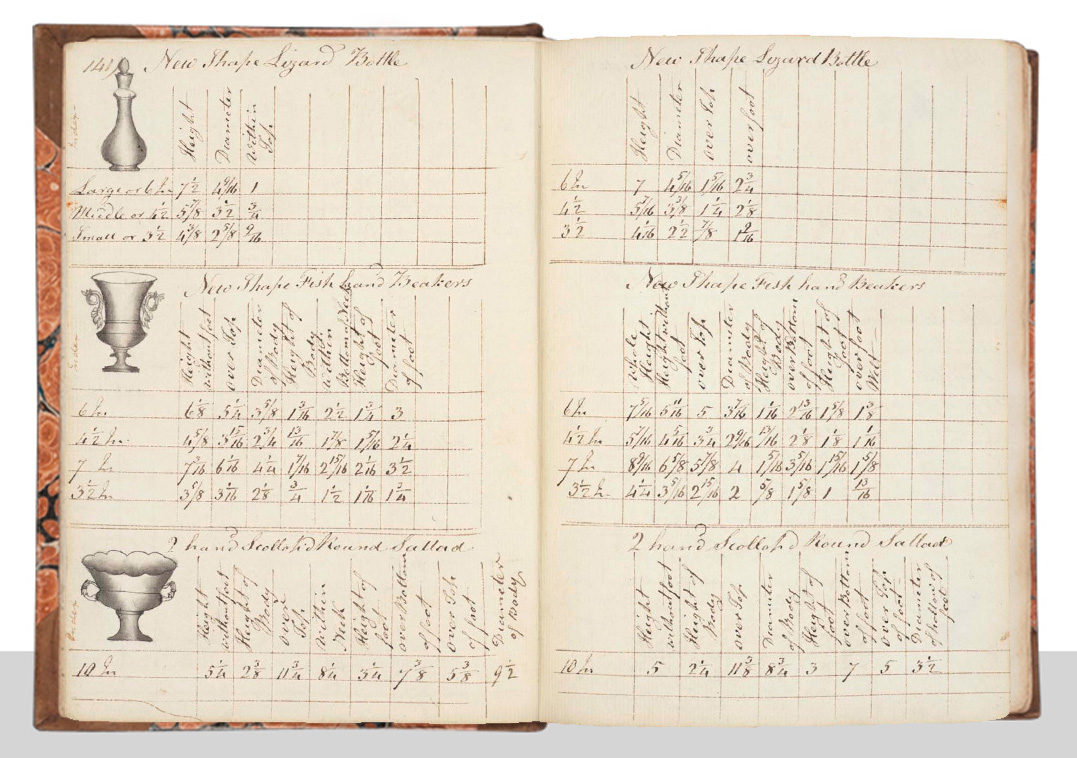 141
New Shape Lizard Bottle
Height Diameter within Top
Large or 6 In 7 1/2 4 9/16 1
Middle or 4 1/2 5 7/8 3 1/2 3/4
Small or 3 1/2 4 3/8 2 5/8 9/16
New Shape Fish hand Beakers
Height without foot over Top Diameter of Body Height of Body within Bottom Neck Height of foot Diameter of foot
6 In 6 1/8 5 1/4 3 5/8 1 3/16 2 1/2 1 3/4 3
4 1/2 In. 4 5/8 3 15/16 2 3/4 13/16 1 7/8 1 5/16 2 1/4
7 In 7 3/16 6 1/16 4 1/4 1 7/16 2 15/16 2 1/16 3 1/2
3 1/2 In 3 5/8 3 1/16 2 1/8 3/4 1 1/2 1 1/16 1 3/4
2 hand Scollop'd Round Sallad
Height without foot Height of Body over Top within Neck Height of foot over Bottom of foot over Top of foot Diameter of Body
10 In 5 1/4 2 3/8 11 3/4 8 1/4 3 1/4 7 3/8 5 3/8 9 1/2
New Shape Lizard Bottle
Height Diameter over Top over foot
6 In 7 4 5/16 1 5/16 2 3/4
4 1/2 5 7/16 3 3/8 1 1/4 2 1/8
3 1/2 4 1/16 2 1/2 7/8 1 9/16
New Shape Fish hand Beakers
whole Height Height without foot over Top Diameter of Body Height of Body over Bottom of foot Height of foot over foot
6 In 7 5/16 5 11/16 5 3 7/16 1 1/16 2 13/16 1 5/8 1 3/8
4 1/2 In. 5 7/16 4 5/16 3 3/4 2 9/16 13/16 2 1/8 1 1/8 1 1/16
7 In 8 9/16 6 5/8 5 7/8 4 1 5/16 3 5/16 1 15/16 1 5/8
3 1/2 In. 4 1/4 3 5/16 2 15/16 2 5/8 1 5/8 1 13/16
2 hand Scollop'd Round Sallad
Height without foot Height of Body over Top Diameter of Body Height of foot over Bottom of foot over Top of foot Diameter of hollow of foot
10 In 5 2 1/4 11 3/8 8 3/4 3 7 5 3 1/2